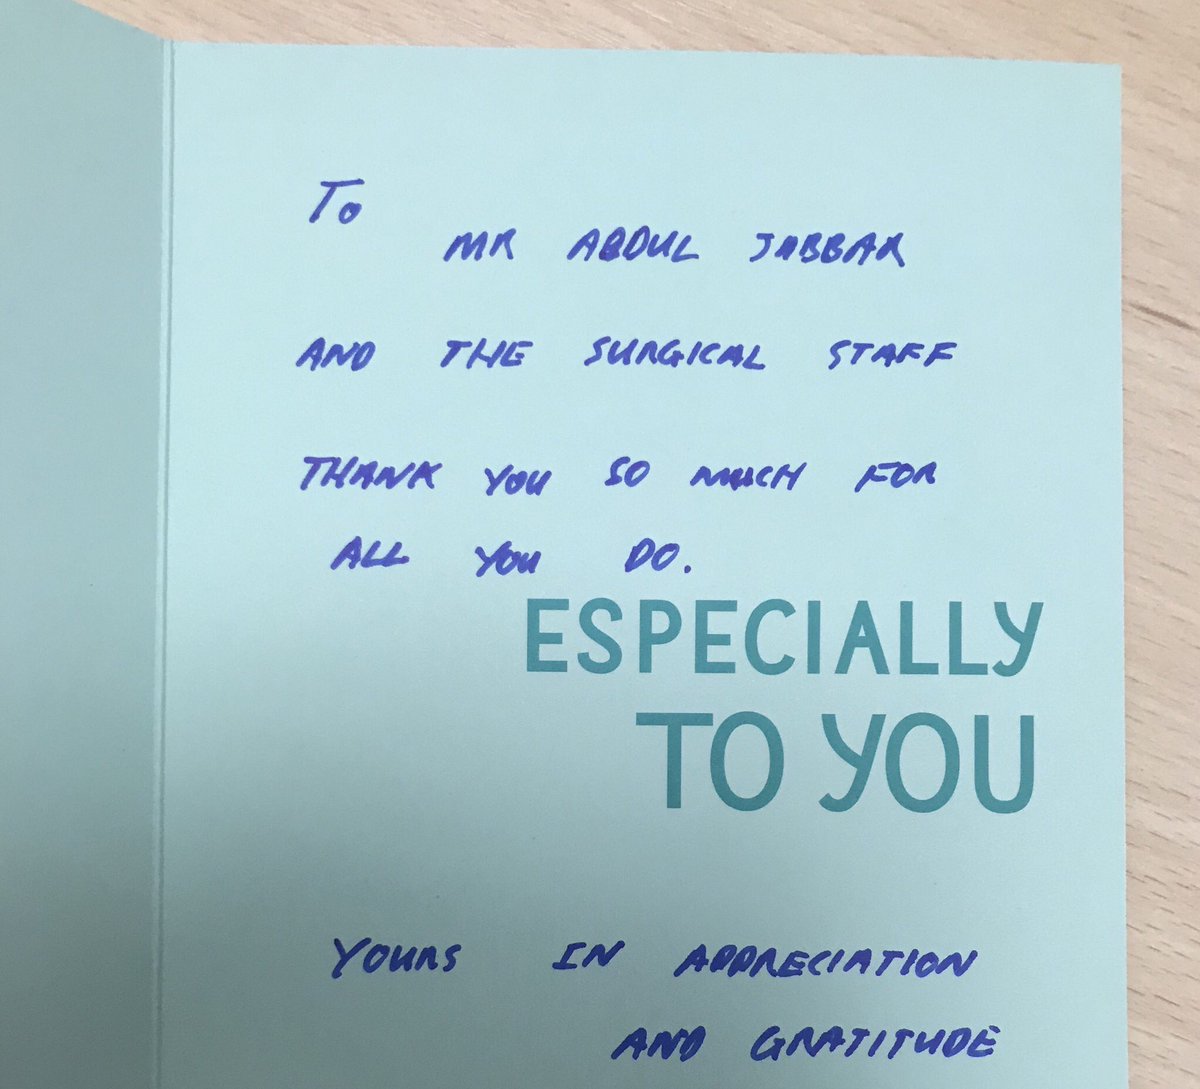 To
MR ABDUL JABBAR
AND THE SURGICAL STAFF
THANK YOU SO MUCH FOR
ALL YOU DO.
ESPECIALLY
TO YOU
YOURS IN APPRECIATION
AND GRATITUDE